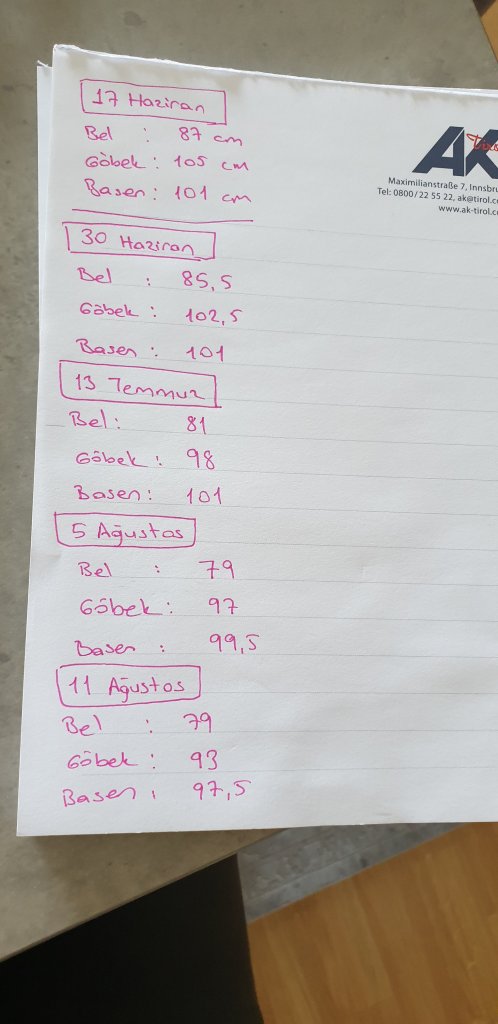 17 Haziran
Bel : 87 cm
Göbek : 105 cm
Basen : 101 cm
30 Haziran
Bel : 85,5
Göbek : 102,5
Basen : 101
13 Temmuz
Bel : 81
Göbek : 98
Basen : 101
5 Ağustos
Bel : 79
Göbek : 97
Basen : 99,5
11 Ağustos
Bel : 79
Göbek : 93
Basen : 97,5
AK
Maximilianstraße 7, Innsbru
Tel: 0800/22 55 22, ak@tirol.co
www.ak-tirol.co